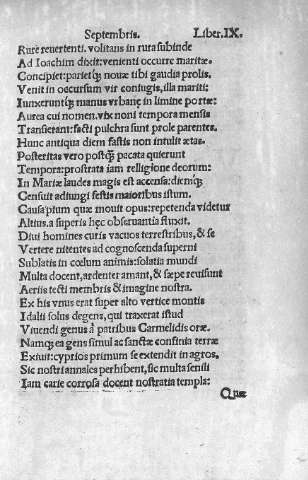 Septembris. Liber.IX.
Rure reuertenti. volitans in rura subinde
Ad Ioachim dixit: venienti occurre maritæ.
Concipiet: parietq́; nouæ tibi gaudia prolis.
Venit in occursum vir coniugis, illa mariti;
Iunxeruntq́; manus vrbanę in limine portæ:
Aurea cui nomen. vix noni tempora mensis
Transierant: facti pulchra sunt prole parentes.
Hunc antiqua diem fastis non intulit ætas.
Posteritas vero postq̃; pacata quierunt
Tempora: prostrata iam relligione deorum:
In Mariæ laudes magis est accensa: diemq́;
Censuit adiungi festis maioribus istum.
Causa pium quæ mouit opus: repetenda videtur
Altius. a superis hęc obseruantia fluxit.
Diui homines curis vacuos terrestribus, & se
Vertere nitentes ad cognoscenda superni
Sublatis in cœlum animis: solatia mundi
Multa docent, ardenter amant, & sæpe reuisunt
Aeriis tecti membris & imagine nostra.
Ex his vnus erat super alto vertice montis
Idalii solus degens, qui traxerat istud
Viuendi genus á patribus Carmelidis oræ.
Namq́; ea gens simul ac sanctæ confinia terræ
Exiuit: cyprios primum se extendit in agros.
Sic nostri annales perhibent, sic multa senili
Iam carie corrosa docent nostratia templa:
Quæ